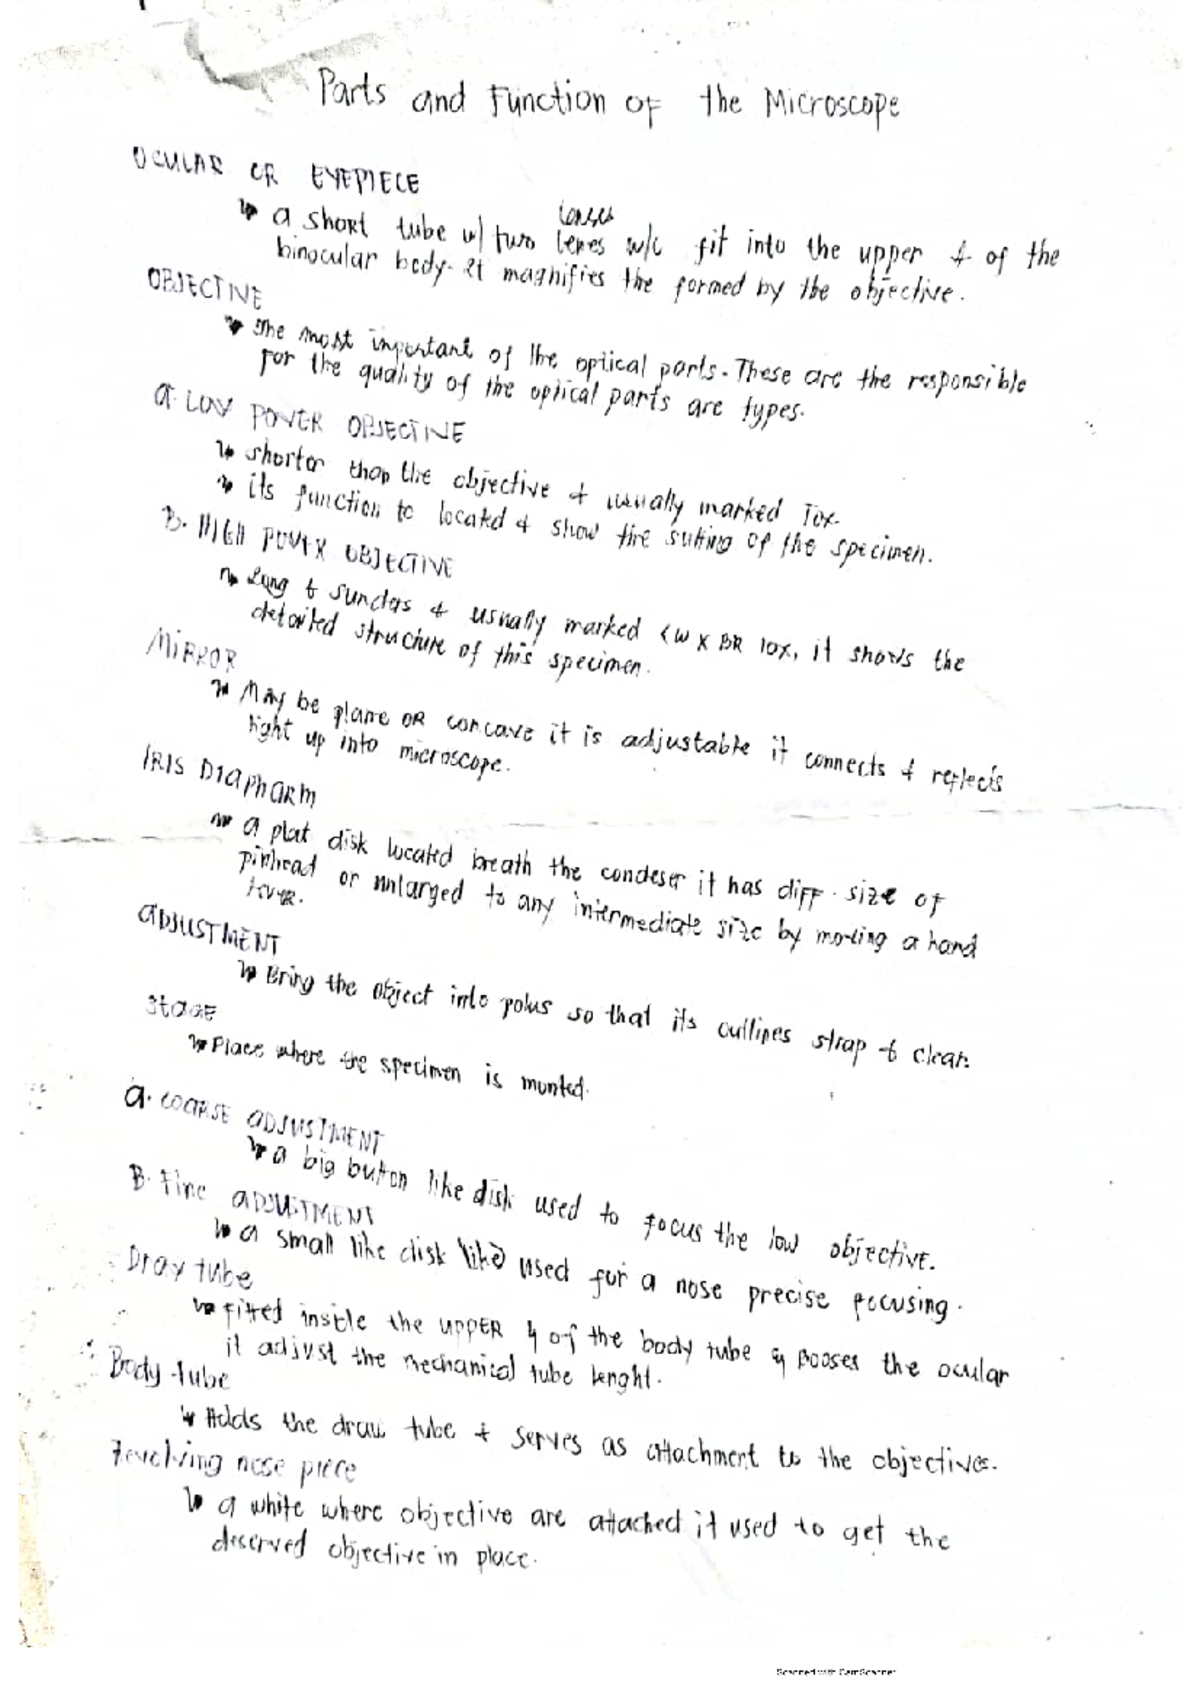 Parts and Function of the Microscope
OCULAR OR EYEPIECE
lenses
a short tube w/ two lenes w/c fit into the upper & of the
binocular body. It magnifies the formed by the objective.
OBJECTIVE
The most important of the optical parts. These are the responsible
for the quality of the optical parts are types.
a. LOW POWER OBJECTIVE
shorter than the objective & usually marked 10x.
its function to located & show the of the specimen.
B. HIGH POWER OBJECTIVE
Long & & usually marked 10x, it shows the
detailed structure of this specimen.
MIRROR
May be plane OR concave it is adjustable it connects & reflects
light up into microscope.
IRIS Diapharm
a plat disk located breath the condeser it has diff. size of
pinhead or nnlarged to any intermediate size by moving a hand
lever.
aDJUSTMENT
Bring the object into pokus so that its outlines & clear.
Stage
Place where the specimen is munted.
a. COARSE aDJUSTMENT
a big button like disk used to focus the low objective.
B. Fine aDJUSTMENT
a small like disk like used for a nose precise focusing.
Draw tube
Fitted inside the UPPER of the body tube & the ocular
it adjust the mechanical tube lenght.
Body tube
Holds the draw tube & serves as attachment to the objectives.
Revolving nose piece
a white where objective are attached it used to get the
deserved objective in place.
Scanned with CamScanner